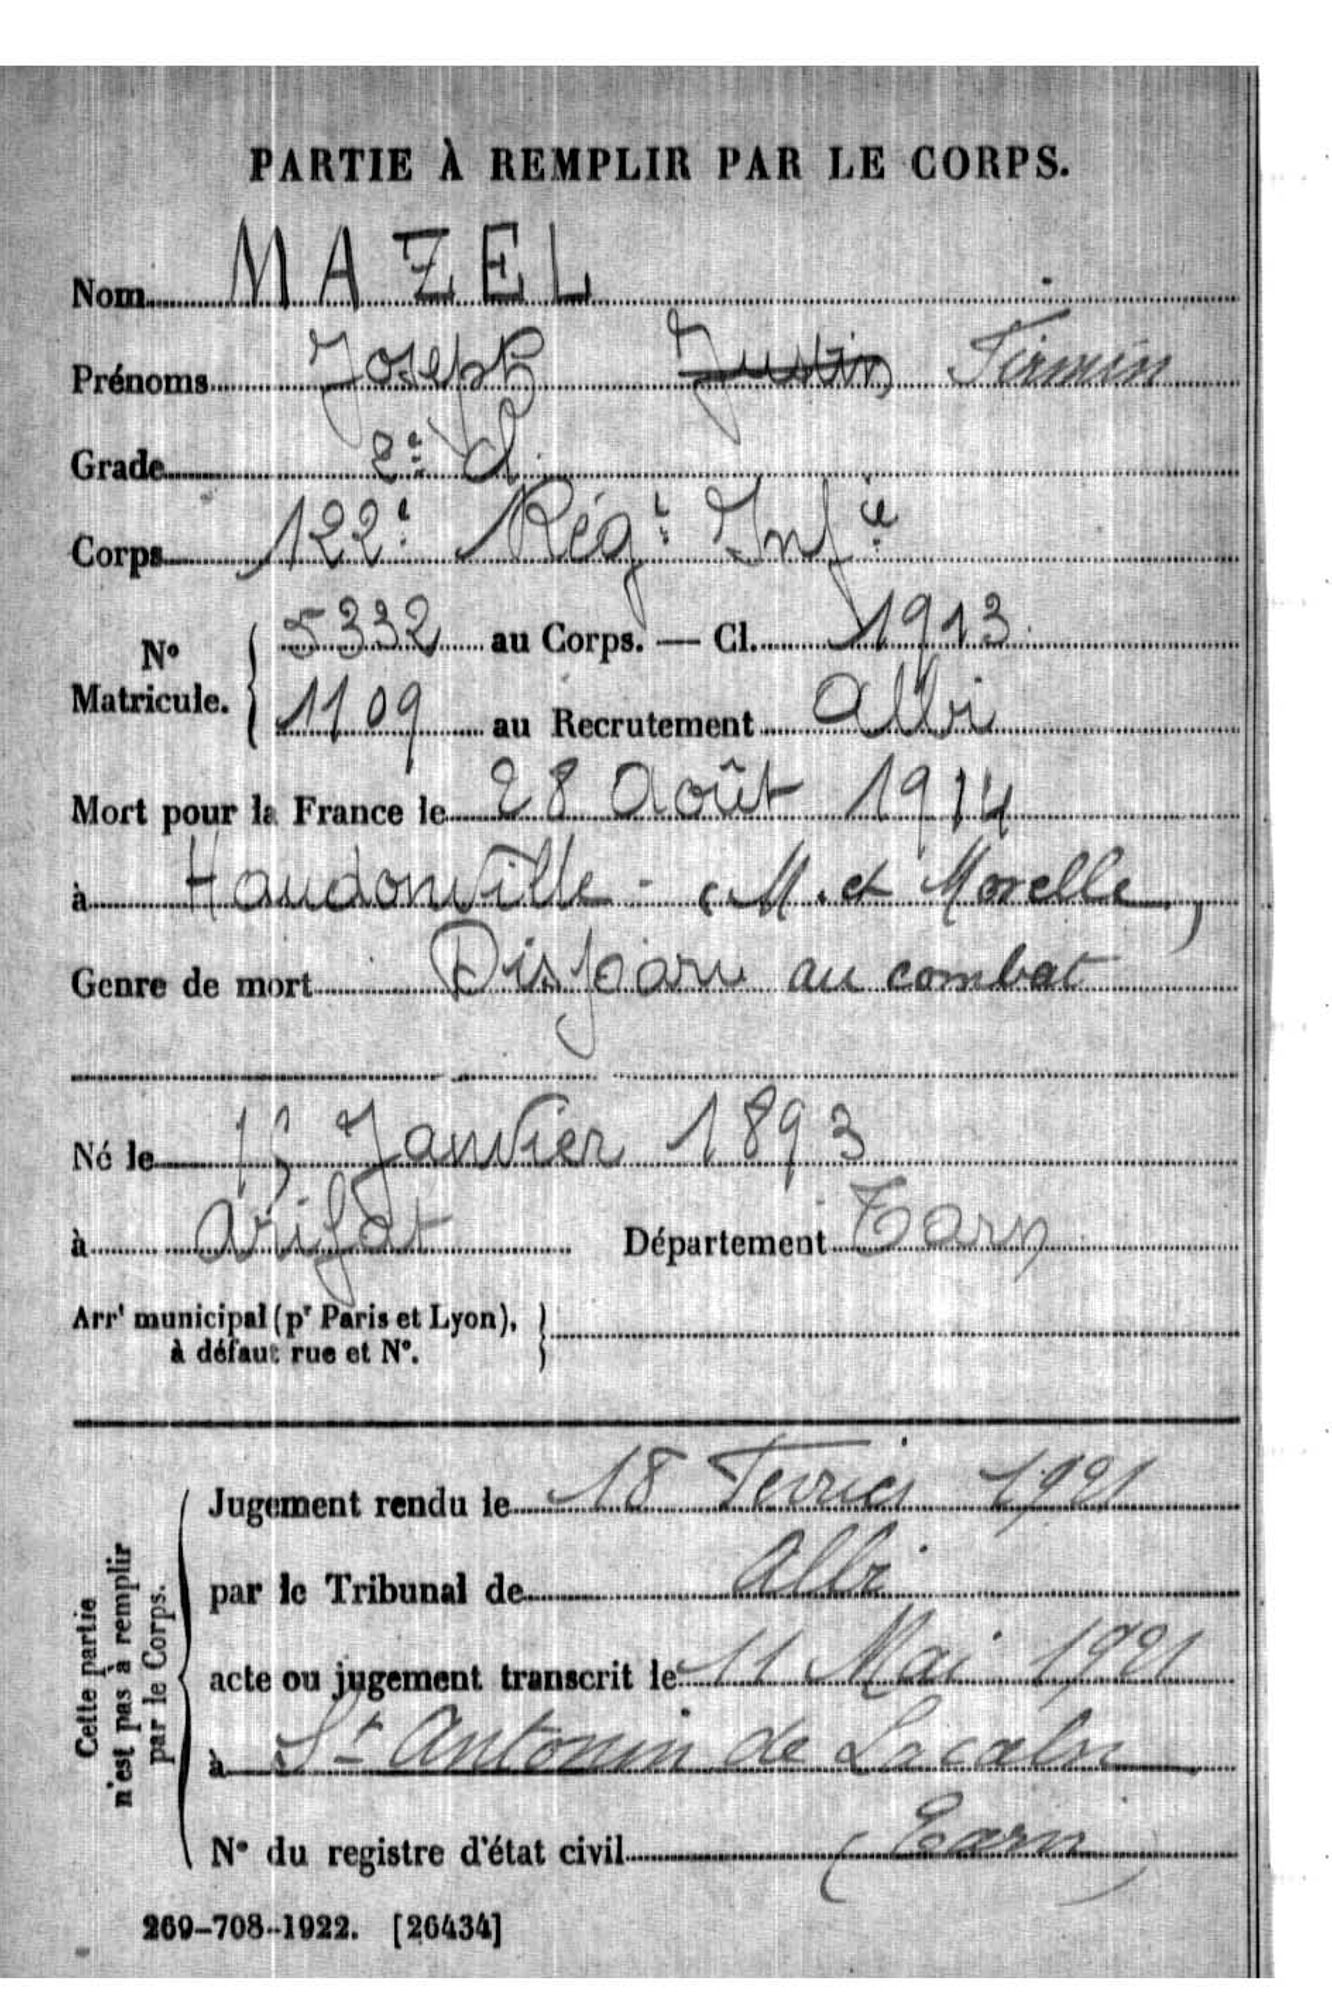 PARTIE À REMPLIR PAR LE CORPS.
Nom MAZEL
Prénoms Joseph Justin Firmin
Grade 2e Cl.
Corps 122e Régt Infie
No Matricule. { 5332 au Corps. — Cl. 1913
1109 au Recrutement Albi
Mort pour la France le 28 Août 1914
à Haudonville - (M. et Moselle)
Genre de mort Disparu au combat
Né le 15 Janvier 1893
à Arifat Département Tarn
Arrt municipal (pr Paris et Lyon), }
à défaut rue et N°.
Cette partie n'est pas à remplir par le Corps.
Jugement rendu le 18 Fevrier 1921
par le Tribunal de Albi
acte ou jugement transcrit le 11 Mai 1921
à St Antonin de Lacalm
N° du registre d'état civil (Tarn)
269-708-1922. [26434]